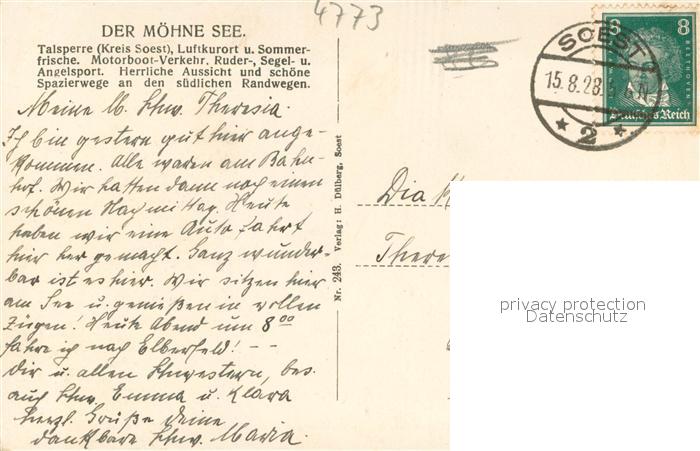 4773
DER MÖHNE SEE.
Talsperre (Kreis Soest), Luftkurort u. Sommer-
frische. Motorboot-Verkehr, Ruder-, Segel- u.
Angelsport. Herrliche Aussicht und schöne
Spazierwege an den südlichen Randwegen.
Meine lb. Schw. Theresia.
Ich bin gestern gut hier ange-
kommen. Alle waren am Bahn-
hof. Wir hatten dann noch einen
schönen Nachmittag. Heute
haben wir eine Autofahrt
hier her gemacht. Ganz wunder-
bar ist es hier. Wir sitzen hier
am See u. genießen in vollen
Zügen! Heute Abend um 8 00
fahre ich nach Elberfeld! --
Dir u. allen Schwestern, bes.
auch Schw. Emma u. Klara
herzl. Grüße deine
dankbare Schw. Maria.
Nr. 243. Verlag: H. Dülberg, Soest
SOEST
15.8.28.
2
8 8
BEETHOVEN
Deutsches Reich
Dia
There
privacy protection
Datenschutz